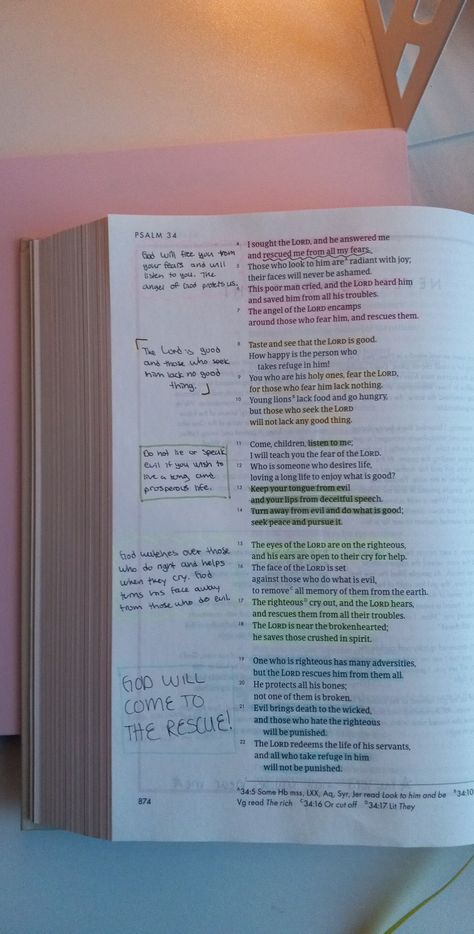 PSALM 34
God will free you from
your fears and will
listen to you. The
angel of God protects us.
4 I sought the LORD, and he answered me
and rescued me from all my fears.
5 Those who look to him are A radiant with joy;
their faces will never be ashamed.
6 This poor man cried, and the LORD heard him
and saved him from all his troubles.
7 The angel of the LORD encamps
around those who fear him, and rescues them.
The Lord is good
and those who seek
him lack no good
thing.
8 Taste and see that the LORD is good.
How happy is the person who
takes refuge in him!
9 You who are his holy ones, fear the LORD,
for those who fear him lack nothing.
10 Young lions B lack food and go hungry,
but those who seek the LORD
will not lack any good thing.
Do not lie or speak
evil if you wish to
live a long and
prosperous life.
11 Come, children, listen to me;
I will teach you the fear of the LORD.
12 Who is someone who desires life,
loving a long life to enjoy what is good?
13 Keep your tongue from evil
and your lips from deceitful speech.
14 Turn away from evil and do what is good;
seek peace and pursue it.
God watches over those
who do right and helps
when they cry. God
turns his face away
from those who do evil.
15 The eyes of the LORD are on the righteous,
and his ears are open to their cry for help.
16 The face of the LORD is set
against those who do what is evil,
to remove C all memory of them from the earth.
17 The righteous D cry out, and the LORD hears,
and rescues them from all their troubles.
18 The LORD is near the brokenhearted;
he saves those crushed in spirit.
GOD WILL
COME TO
THE RESCUE!
19 One who is righteous has many adversities,
but the LORD rescues him from them all.
20 He protects all his bones;
not one of them is broken.
21 Evil brings death to the wicked,
and those who hate the righteous
will be punished.
22 The LORD redeems the life of his servants,
and all who take refuge in him
will not be punished.
874
A 34:5 Some Hb mss, LXX, Aq, Syr, Jer read Look to him and be B 34:10
Vg read The rich C 34:16 Or cut off D 34:17 Lit They